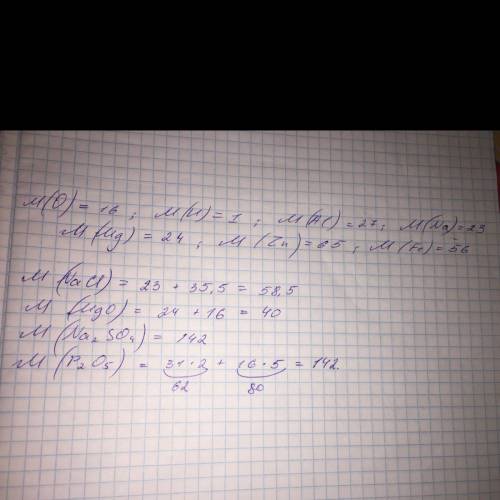 M(O) = 16 ; M(H) = 1 ; M(Al) = 27 ; M(Na) = 23
M(Mg) = 24 ; M(Zn) = 65 ; M(Fe) = 56
M(NaCl) = 23 + 35,5 = 58,5
M(MgO) = 24 + 16 = 40
M(Na₂SO₄) = 142
M(P₂O₅) = 31·2 + 16·5 = 142.
62 80